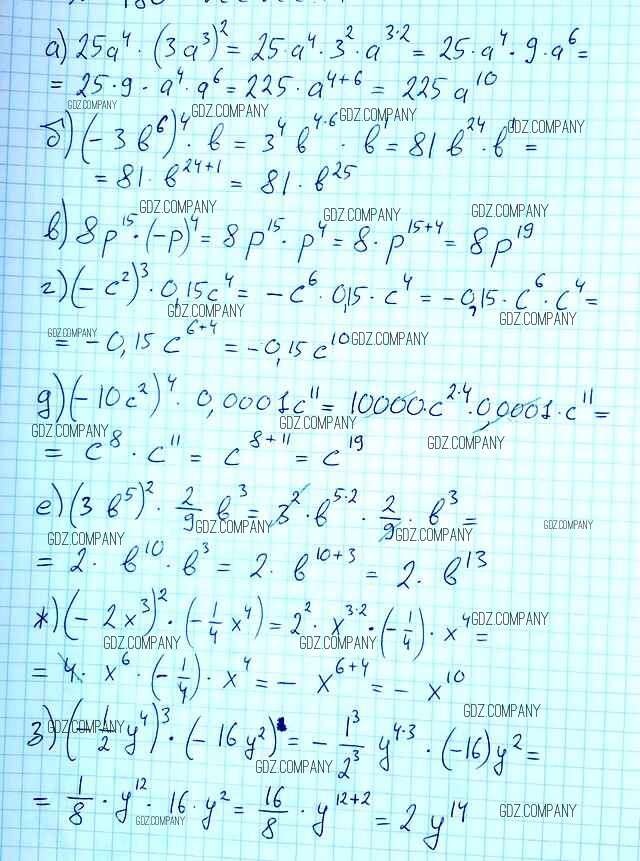 а) 25a⁴ · (3a³)² = 25 · a⁴ · 3² · a³·² = 25 · a⁴ · 9 · a⁶ =
= 25 · 9 · a⁴ · a⁶ = 225 · a⁴⁺⁶ = 225 a¹⁰
GDZ.COMPANY GDZ.COMPANY GDZ.COMPANY
б) (-3b⁶)⁴ · b = 3⁴ b⁴·⁶ · b¹ = 81 b²⁴ · b¹ =
GDZ.COMPANY
= 81 · b²⁴⁺¹ = 81 · b²⁵
GDZ.COMPANY GDZ.COMPANY GDZ.COMPANY
в) 8p¹⁵ · (-p)⁴ = 8p¹⁵ · p⁴ = 8 · p¹⁵⁺⁴ = 8p¹⁹
г) (-c²)³ · 0,15c⁴ = -c⁶ · 0,15 · c⁴ = -0,15 · c⁶ · c⁴ =
GDZ.COMPANY GDZ.COMPANY
= -0,15 c⁶⁺⁴ = -0,15 c¹⁰
GDZ.COMPANY GDZ.COMPANY
д) (-10c²)⁴ · 0,0001c¹¹ = 10000 · c²·⁴ · 0,0001 · c¹¹ =
GDZ.COMPANY GDZ.COMPANY GDZ.COMPANY
= c⁸ · c¹¹ = c⁸⁺¹¹ = c¹⁹
е) (3b⁵)² · 2/9 b³ = 3² · b⁵·² · 2/9 · b³ =
GDZ.COMPANY GDZ.COMPANY GDZ.COMPANY GDZ.COMPANY
= 2 · b¹⁰ · b³ = 2 · b¹⁰⁺³ = 2 · b¹³
ж) (-2x³)² · (-1/4 x⁴) = 2² · x³·² · (-1/4) · x⁴ =
GDZ.COMPANY GDZ.COMPANY GDZ.COMPANY
= 4 · x⁶ · (-1/4) · x⁴ = - x⁶⁺⁴ = - x¹⁰
GDZ.COMPANY GDZ.COMPANY
з) (-1/2 y⁴)³ · (-16y²) = - 1³/2³ y⁴·³ · (-16)y² =
GDZ.COMPANY
= 1/8 · y¹² · 16 · y² = 16/8 · y¹²⁺² = 2 y¹⁴
GDZ.COMPANY GDZ.COMPANY